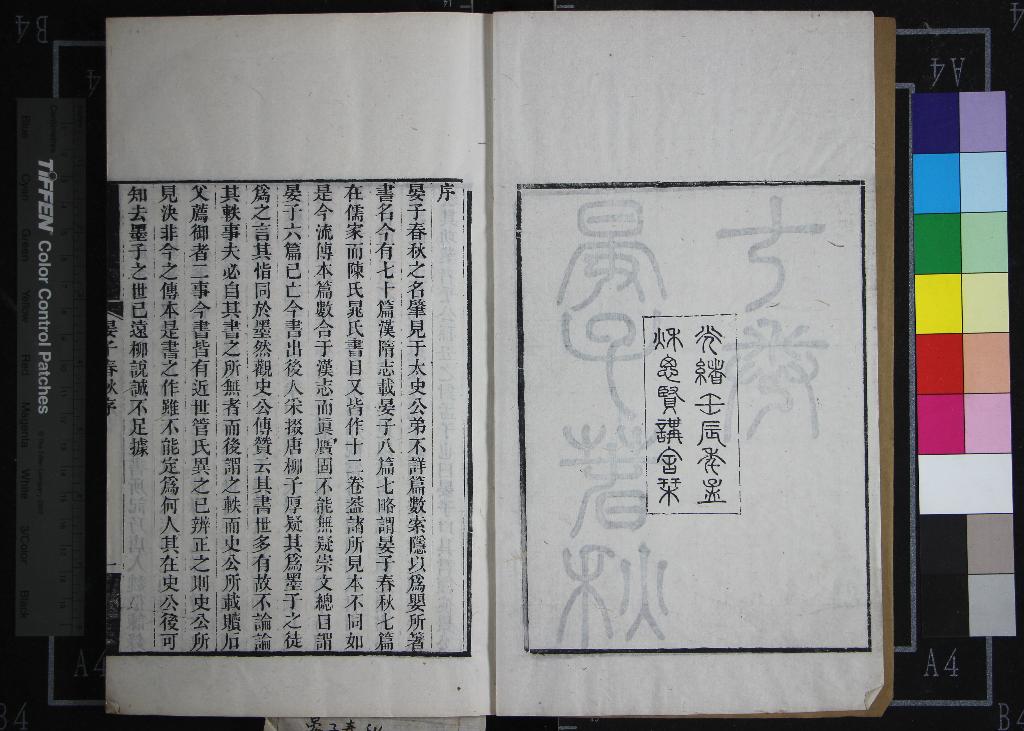 光緒壬辰年孟
秋思賢講舍栞
晏子春秋
序
晏子春秋之名肇見于太史公弟不詳篇數索隱以爲嬰所著
書名今有七十篇漢隋志載晏子八篇七略謂晏子春秋七篇
在儒家而陳氏晁氏書目又皆作十二卷葢諸所見本不同如
是今流傳本篇數合于漢志而眞贗固不能無疑崇文總目謂
晏子六篇已亡今書出後人宋掇唐柳子厚疑其爲墨子之徒
爲之言其恉同於墨然觀史公傳贊云其書世多有故不論論
其軼事夫必自其書之所無者而後謂之軼而史公所載贖石
父薦御者二事今書皆有近世管氏異之已辨正之則史公所
見決非今之傳本是書之作雖不能定爲何人其在史公後可
知去墨子之世已遠柳說誠不足據
晏子春秋序
一
TIFFEN Color Control Patches
Blue
Cyan
Green
Yellow
Red
Magenta
White
3/Color
Black
B4
A4
A4
B4